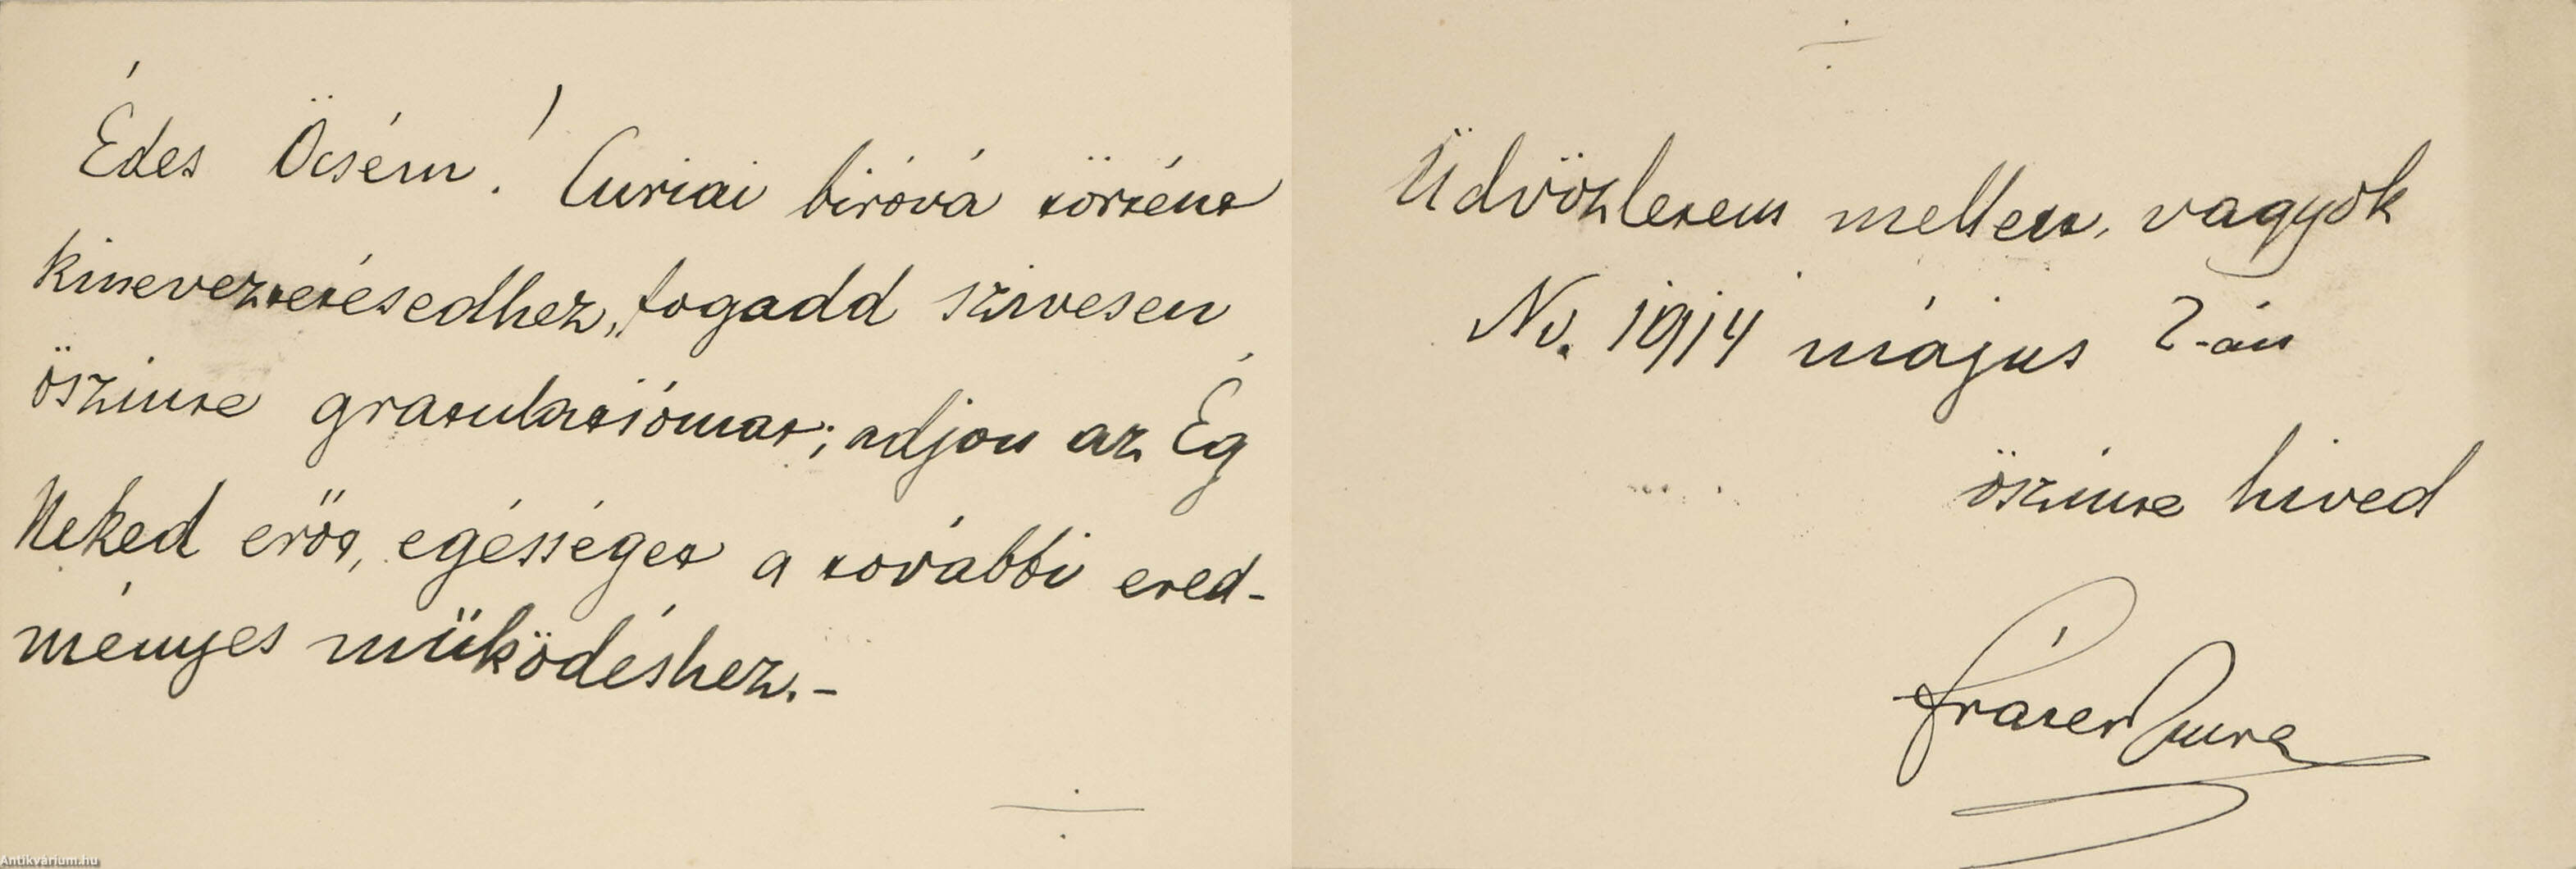 Édes Öcsém! Curiai biróvá történt
kineveztetésedhez, fogadd szivesen
öszinte gratulatiómat; adjon az Ég
Neked erőt, egésséget a további ered-
ményes müködéshez.-
Üdvözletem mellett, vagyok
Nv. 1914 május 2-án
öszinte hived
Fráter Imre
Antikvárium.hu